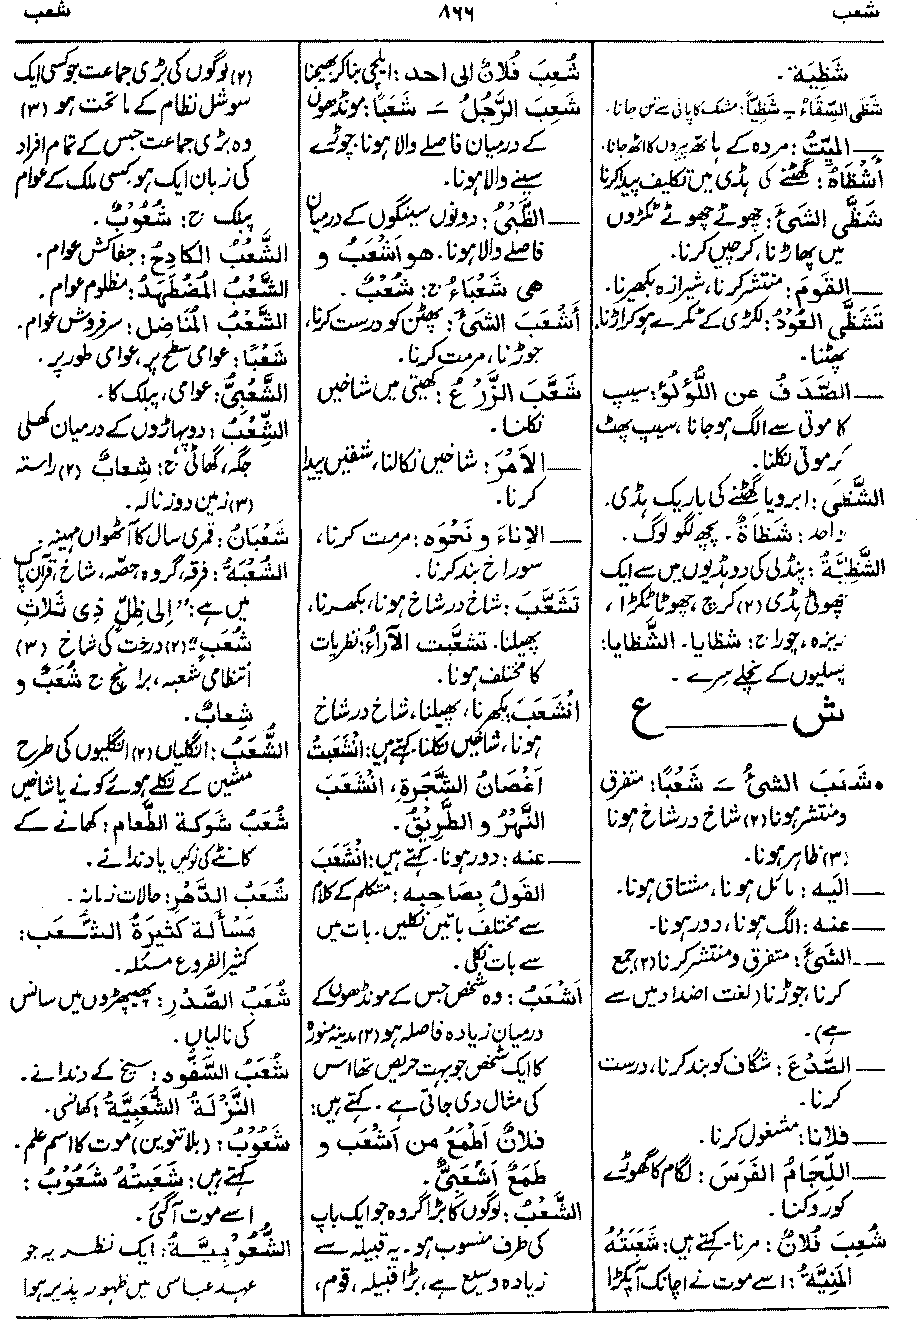 شعب ۸۶۶ شعب
شَظِيَة۔
شَظَى السِّقَاءُ – شَظْيًا: مشک کا پانی سے تن جانا۔
— المَيِّتُ: مردہ کے ہاتھ پیروں کا اٹھ جانا۔
أَشْظَاهُ: گھٹنے کی ہڈی میں تکلیف پیدا کرنا
شَظَّى الشیَٔ: چھوٹے چھوٹے ٹکڑوں
میں پھاڑنا، کرچیں کرنا۔
— القَومَ: منتشر کرنا، شیرازہ بکھیرنا۔
تَشَظَّى العُوْدُ: لکڑی کے ٹکڑے ہو کر اڑنا
پھٹنا۔
— الصَّدَفُ عن اللُّؤلُؤِ: سیپ
کا موتی سے الگ ہو جانا، سیپ پھٹ
کر موتی نکلنا۔
الشَّظَى: ابرو یا گھٹنے کی باریک ہڈی۔
واحد: شَظَاةٌ۔ پچھ لگو لوگ۔
الشَّظِيَّةُ: پنڈلی کی دو ہڈیوں میں سے ایک
چھوٹی ہڈی (۲) کرچ، چھوٹا ٹکڑا،
ریزہ، چورا ج: شظايا۔ الشَّظايا:
پسلیوں کے نچلے سرے۔
ش — ع
• شَعَبَ الشیُٔ – شَعْبًا: متفرق
و منتشر ہونا (۲) شاخ در شاخ ہونا
(۳) ظاہر ہونا۔
— الَیه: مائل ہونا، مشتاق ہونا۔
— عنه: الگ ہونا، دور ہونا۔
— الشیَٔ: متفرق و منتشر کرنا (۲) جمع
کرنا، جوڑنا (لغت اضداد میں سے
ہے)۔
— الصَّدْعَ: شگاف کو بند کرنا، درست
کرنا۔
— فلانا: مشغول کرنا۔
— اللِّجَامُ الفَرَسَ: لگام کا گھوڑے
کو روکنا۔
شُعِبَ فُلانٌ: مرنا۔ کہتے ہیں: شَعَبَتْهُ
المَنِیَّةُ: اسے موت نے اچانک آ پکڑا
شُعِبَ فُلانٌ الی احد: ایلچی بنا کر بھیجنا
شَعِبَ الرَّجُلُ – شَعَبًا: مونڈھوں
کے درمیان فاصلے والا ہونا۔ چوڑے
سینے والا ہونا۔
— الظَّبْیُ: دونوں سینگوں کے درمیان
فاصلے والا ہونا۔ هو اَشْعَبُ و
هی شَعْبَاءُ ج: شُعْبٌ۔
أَشْعَبَ الشیَٔ: پھٹن کو درست کرنا،
جوڑنا، مرمت کرنا۔
شَعَّبَ الزَّرْعُ: کھیتی میں شاخیں
نکلنا۔
— الاَمْرَ: شاخیں نکالنا، شقیں پیدا
کرنا۔
— الاِناءَ و نَحْوَه: مرمت کرنا،
سوراخ بند کرنا۔
تَشَعَّبَ: شاخ در شاخ ہونا، بکھرنا،
پھیلنا۔ تشعَّبت الآراءُ: نظریات
کا مختلف ہونا۔
انْشَعَبَ: بکھرنا، پھیلنا، شاخ در شاخ
ہونا، شاخیں نکلنا۔ کہتے ہیں: انْشَعَبَتْ
اَغْصَانُ الشَّجَرَةِ، انْشَعَبَ
النَّهْرُ و الطَّرِيْقُ۔
— عنه: دور ہونا۔ کہتے ہیں: انْشَعَبَ
القَولُ بِصَاحِبِه: متکلم کے کلام
سے مختلف باتیں نکلیں۔ بات میں
سے بات نکلی۔
اَشْعَبُ: وہ شخص جس کے مونڈھوں کے
درمیان زیادہ فاصلہ ہو (۲) مدینہ منورہ
کا ایک شخص جو بہت حریص تھا اس
کی مثال دی جاتی ہے۔ کہتے ہیں:
فلانٌ اَطْمَعُ من اَشْعَب و
طَمَعٌ اَشْعَبِیٌّ۔
الشَّعْبُ: لوگوں کا بڑا گروہ جو ایک باپ
کی طرف منسوب ہو۔ یہ قبیلہ سے
زیادہ وسیع ہے، بڑا قبیلہ، قوم،
(۲) لوگوں کی بڑی جماعت جو کسی ایک
سوشل نظام کے ماتحت ہو (۳)
وہ بڑی جماعت جس کے تمام افراد
کی زبان ایک ہو، کسی ملک کے عوام
پبلک ج: شُعُوْبٌ۔
الشَّعْبُ الکَادِحُ: جفاکش عوام۔
الشَّعْبُ المُضْطَهَدُ: مظلوم عوام۔
الشَّعْبُ المُنَاضِلُ: سرفروش عوام۔
شَعْبًا: عوامی سطح پر، عوامی طور پر۔
الشَّعْبِیُّ: عوامی، پبلک کا۔
الشِّعْبُ: دو پہاڑوں کے درمیان کھلی
جگہ، گھاٹی ج: شِعابٌ (۲) راستہ
(۳) زمین دوز نالہ۔
شَعْبَانُ: قمری سال کا آٹھواں مہینہ۔
الشُّعْبَةُ: فرقہ، گروہ، حصہ، شاخ، قرآن پاک
میں ہے: "اِلیٰ ظِلٍّ ذِی ثَلَاثِ
شُعَبٍ" (۲) درخت کی شاخ (۳)
انتظامی شعبہ، برانچ ج شُعَبٌ و
شِعابٌ۔
الشُّعَبُ: انگلیاں (۲) انگلیوں کی طرح
مشین کے نکلے ہوئے کونے یا شاخیں
شُعَبُ شَوکة الطَّعام: کھانے کے
کانٹے کی نوکیں یا دندانے۔
شُعَبُ الدَّهْرِ: حالات زمانہ۔
مَسْأَلة کَثِیْرَةُ الشُّعَب:
کثیر الفروع مسئلہ۔
شُعَبُ الصَّدْرِ: پھیپھڑوں میں سانس
کی نالیاں۔
شُعَبُ السَّفُّودِ: سیخ کے دندانے۔
النَّزْلَةُ الشُّعَبِیَّةُ: کھانسی۔
شَعُوْبُ: (بلا تنوین) موت کا اسم علم۔
کہتے ہیں: شَعَبَتْهُ شَعُوْبُ:
اسے موت آ گئی۔
الشُّعُوْبِیَّةُ: ایک نظریہ جو
عہد عباسی میں ظہور پذیر ہوا